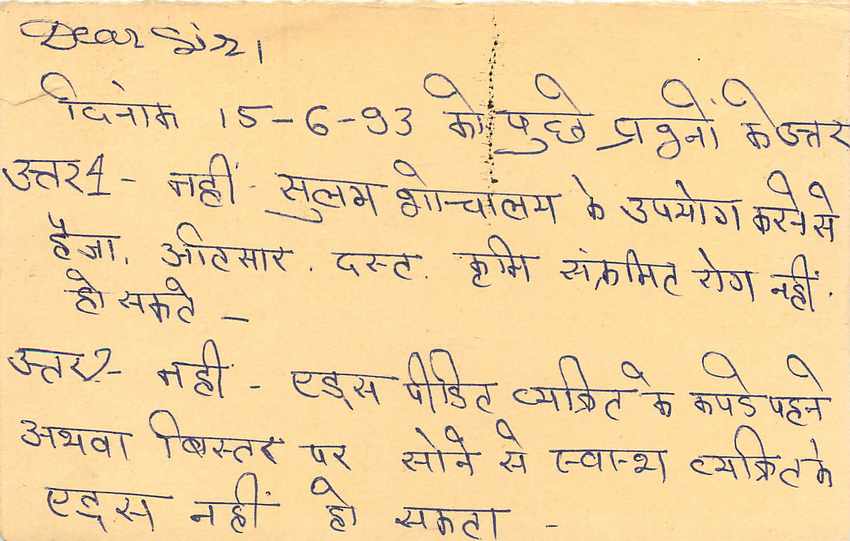 Dear Sir,
दिनांक 15-6-93 को पुछे प्रश्नों के उत्तर
उत्तर 1 - नहीं - सुलभ शोचालय के उपयोग करने से
हैजा. अतिसार. दस्त. कृमि संक्रमित रोग नहीं.
हो सकते -
उत्तर 2 - नही - एड्स पीडित व्यक्ति के कपडे पहने
अथवा बिस्तर पर सोने से स्वास्थ व्यक्ति के
एड्स नहीं हो सकता -